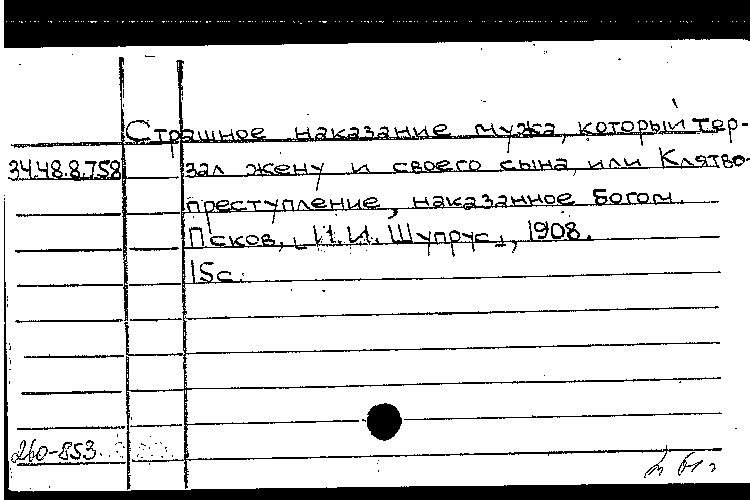 Страшное наказание мужа, который тер-
34.48.8.758 зал жену и своего сына, или Клятво-
преступление, наказанное Богом.
Псков, [И.И. Шупрус], 1908.
15с.
260-853